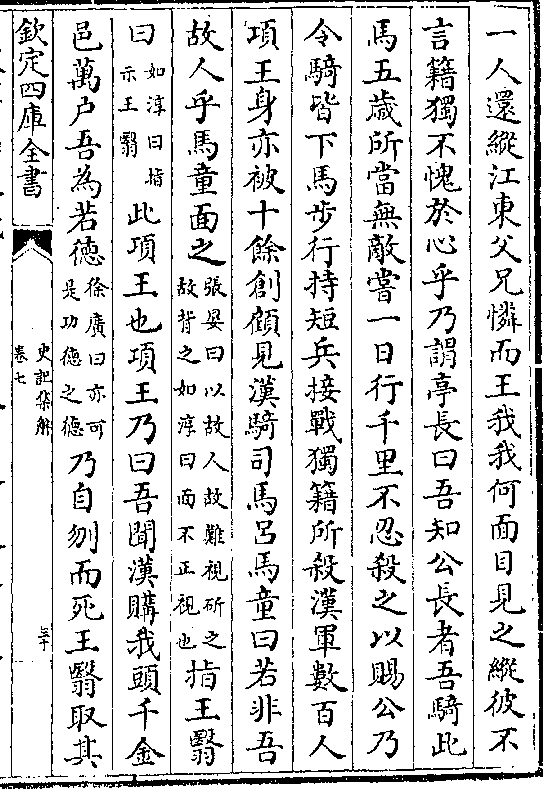 一人還縱江東父兄憐而王我我何面目見之縱彼不
言籍獨不愧於心乎乃謂亭長曰吾知公長者吾騎此
馬五歲所當無敵嘗一日行千里不忍殺之以賜公乃
令騎皆下馬步行持短兵接戰獨籍所殺漢軍數百人
項王身亦被十餘創顧見漢騎司馬呂馬童曰若非吾
故人乎馬童面之張晏曰以故人故難視斫之故背之如淳曰面不正視也指王翳
曰如淳曰指示王翳此項王也項王乃曰吾聞漢購我頭千金
邑萬戶吾為若德徐廣曰亦可是功德之德乃自刎而死王翳取其
欽定四庫全書
史記集解
卷七
三十